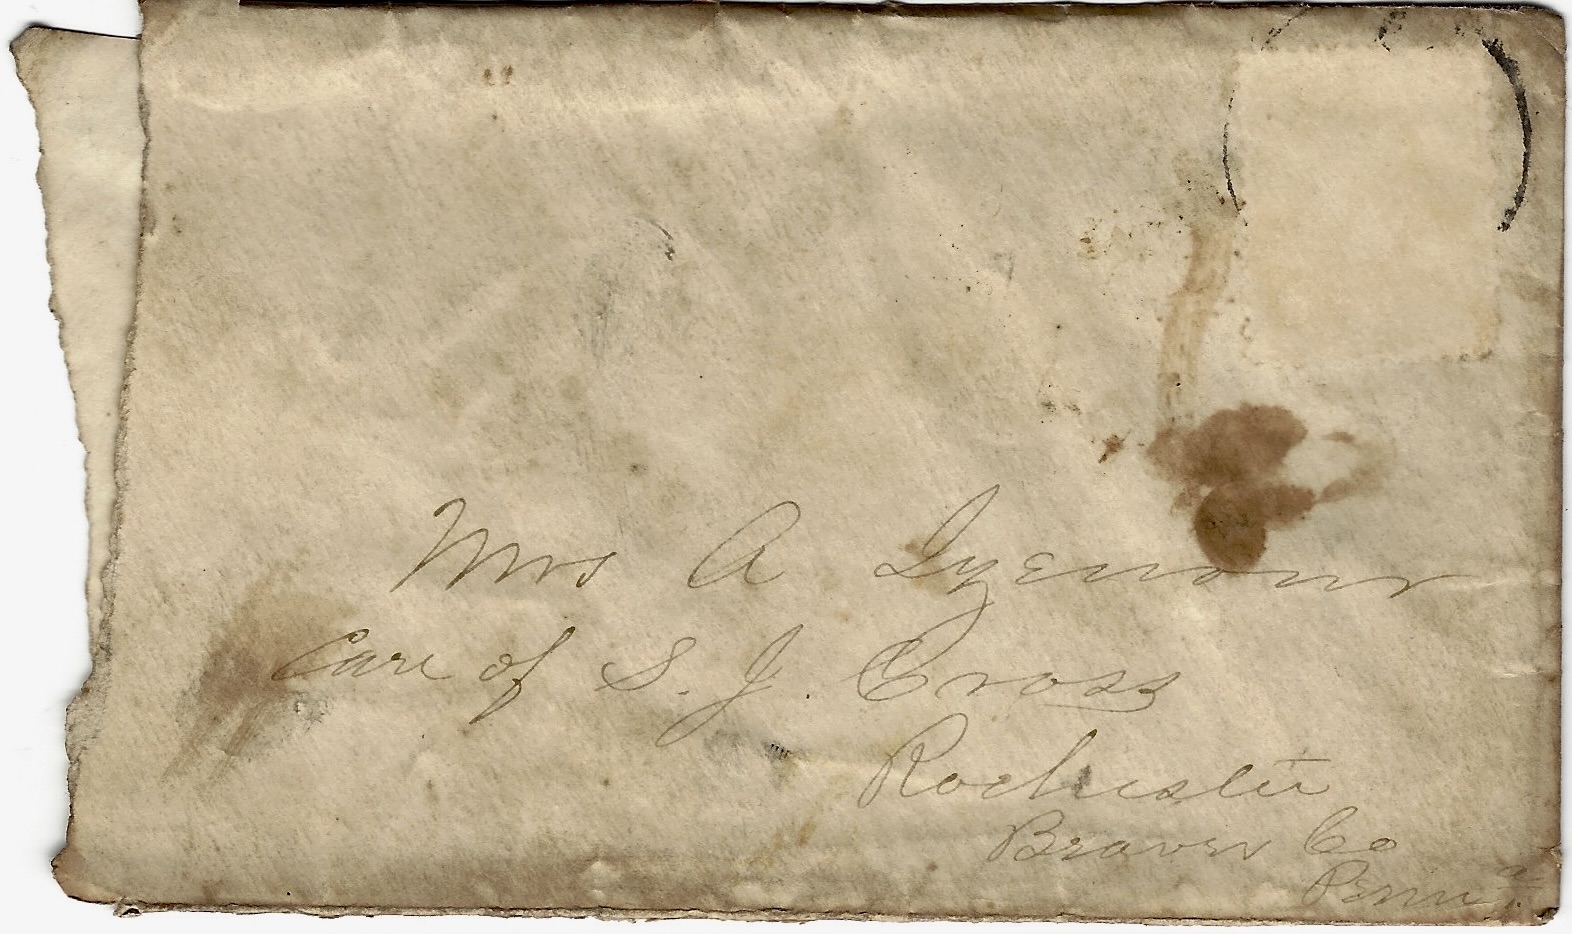 Mrs A Izenour
Care of S. J. Cross
Rochester
Beaver Co
Penna.